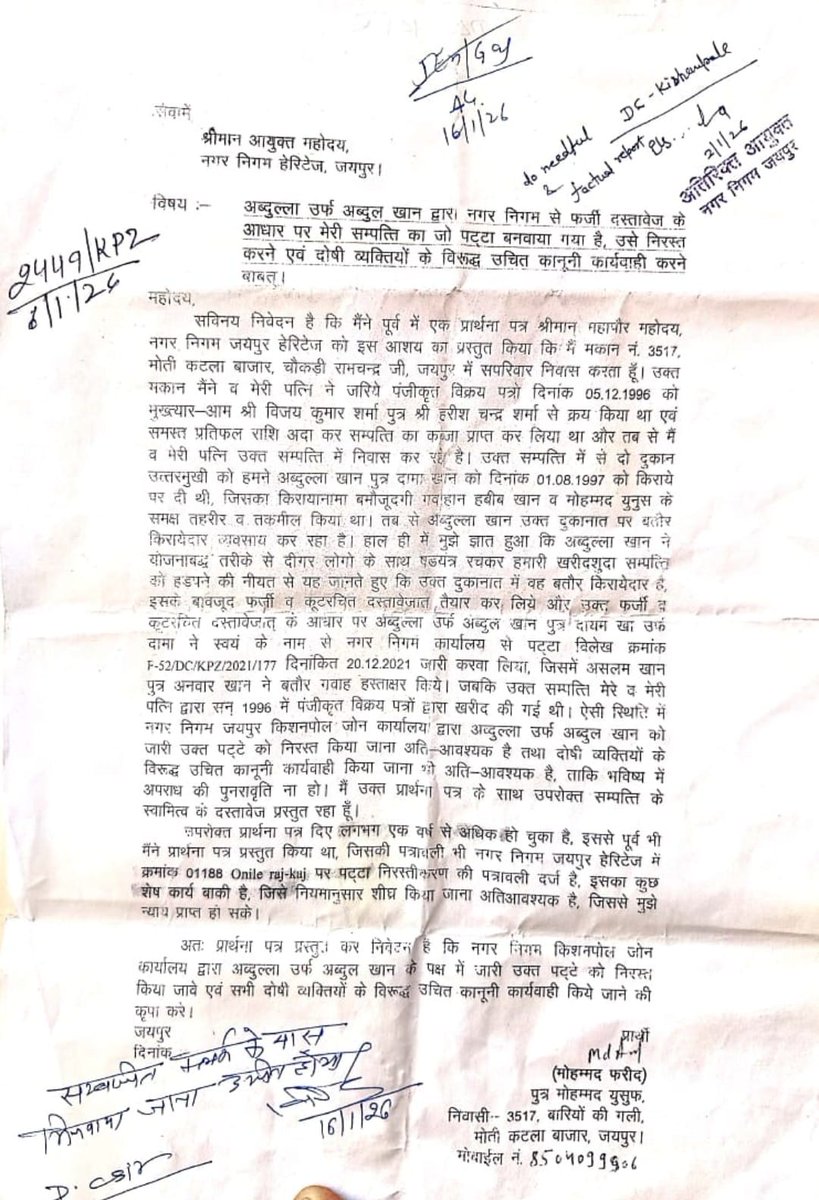 16/1/26
DC - Kishanpole
do needful
& factual report pls...
2/1/26
अतिरिक्त आयुक्त
नगर निगम जयपुर
सेवामें
श्रीमान आयुक्त महोदय,
नगर निगम हेरिटेज, जयपुर।
2449/KPZ
विषय :- अब्दुल्ला उर्फ अब्दुल खान द्वारा नगर निगम से फर्जी दस्तावेज के
आधार पर मेरी सम्पत्ति का जो पट्टा बनवाया गया है, उसे निरस्त
करने एवं दोषी व्यक्तियों के विरूद्ध उचित कानूनी कार्यवाही करने
बाबत्।
महोदय,
सविनय निवेदन है कि मैंने पूर्व में एक प्रार्थना पत्र श्रीमान महापौर महोदय,
नगर निगम जयपुर हेरिटेज को इस आशय का प्रस्तुत किया कि मैं मकान नं. 3517,
मोती कटला बाजार, चौकड़ी रामचन्द्र जी, जयपुर में सपरिवार निवास करता हूँ। उक्त
मकान मैंने व मेरी पत्नि ने जरिये पंजीकृत विक्रय पत्रो दिनांक 05.12.1996 को
मुख्त्यार–आम श्री विजय कुमार शर्मा पुत्र श्री हरीश चन्द्र शर्मा से क्रय किया था एवं
समस्त प्रतिफल राशि अदा कर सम्पत्ति का कब्जा प्राप्त कर लिया था और तब से मैं
व मेरी पत्नि उक्त सम्पत्ति में निवास कर रहे है। उक्त सम्पत्ति में से दो दुकान
उत्तरमुखी को हमने अब्दुल्ला खान पुत्र दामा खान को दिनांक 01.08.1997 को किराये
पर दी थी, जिसका किरायानामा बमौजूदगी गवाहान हबीब खान व मोहम्मद युनुस के
समक्ष तहरीर व तकमील किया था। तब से अब्दुल्ला खान उक्त दुकानात पर बतौर
किरायेदार व्यवसाय कर रहा है। हाल ही में मुझे ज्ञात हुआ कि अब्दुल्ला खान ने
योजनाबद्ध तरीके से दीगर लोगो के साथ षडयंत्र रचकर हमारी खरीदशुदा सम्पत्ति
को हडपने की नीयत से यह जानते हुए कि उक्त दुकानात में वह बतौर किरायेदार है,
इसके बावजूद फर्जी व कूटरचित दस्तावेजात तैयार कर लिये और उक्त फर्जी व
कूटरचित दस्तावेजात् के आधार पर अब्दुल्ला उर्फ अब्दुल खान पुत्र दायम खां उर्फ
दामा ने स्वयं के नाम से नगर निगम कार्यालय से पट्टा विलेख क्रमांक
F-52/DC/KPZ/2021/177 दिनांकित 20.12.2021 जारी करवा लिया, जिसमें असलम खान
पुत्र अनवार खान ने बतौर गवाह हस्ताक्षर किये। जबकि उक्त सम्पत्ति मेरे व मेरी
पत्नि द्वारा सन् 1996 में पंजीकृत विक्रय पत्रों द्वारा खरीद की गई थी। ऐसी स्थिति में
नगर निगम जयपुर किशनपोल जोन कार्यालय द्वारा अब्दुल्ला उर्फ अब्दुल खान को
जारी उक्त पट्टे को निरस्त किया जाना अति–आवश्यक है तथा दोषी व्यक्तियों के
विरूद्ध उचित कानूनी कार्यवाही किया जाना भी अति–आवश्यक है, ताकि भविष्य में
अपराध की पुनरावृति ना हो। मैं उक्त प्रार्थना पत्र के साथ उपरोक्त सम्पत्ति के
स्वामित्व के दस्तावेज प्रस्तुत रहा हूँ।
उपरोक्त प्रार्थना पत्र दिए लगभग एक वर्ष से अधिक हो चुका है, इससे पूर्व भी
मैंने प्रार्थना पत्र प्रस्तुत किया था, जिसकी पत्रावली भी नगर निगम जयपुर हेरिटेज में
क्रमांक 01188 Onile raj-kaj पर पट्टा निरस्तीकरण की पत्रावली दर्ज है, इसका कुछ
शेष कार्य बाकी है, जिसे नियमानुसार शीघ्र किया जाना अतिआवश्यक है, जिससे मुझे
न्याय प्राप्त हो सके।
अतः प्रार्थना पत्र प्रस्तुत कर निवेदन है कि नगर निगम किशनपोल जोन
कार्यालय द्वारा अब्दुल्ला उर्फ अब्दुल खान के पक्ष में जारी उक्त पट्टे को निरस्त
किया जावे एवं सभी दोषी व्यक्तियों के विरूद्ध उचित कानूनी कार्यवाही किये जाने की
कृपा करे।
जयपुर
दिनांक
प्रार्थी
(मोहम्मद फरीद)
पुत्र मोहम्मद युसुफ,
निवासी- 3517, बारियों की गली,
मोती कटला बाजार, जयपुर।
मोबाईल नं. 8504099906
के पास
जाना उचित होगा
16/1/26